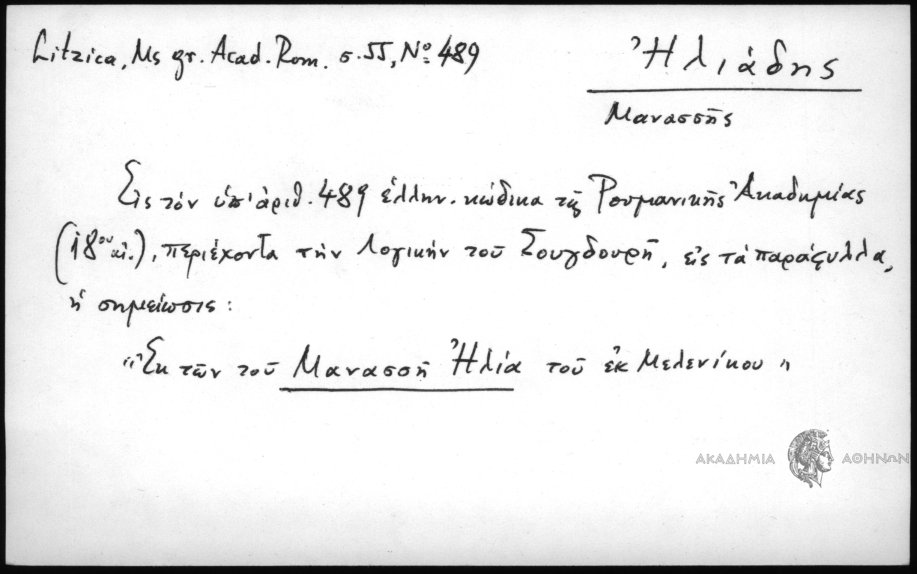 Litzica, Ms gr. Acad. Rom. σ. 55, Nº 489
Ἠλιάδης
Μανασσῆς
Εἰς τὸν ὑπ' ἀριθ. 489 ἑλλην. κώδικα τῆς Ρουμανικῆς Ἀκαδημίας
(18ου αἰ.), περιέχοντα τὴν Λογικὴν τοῦ Σουγδουρῆ, εἰς τὰ παράφυλλα,
ἡ σημείωσις:
"Ἐκ τῶν τοῦ Μανασσῆ Ἠλία τοῦ ἐκ Μελενίκου"
ΑΚΑΔΗΜΙΑ ΑΘΗΝΩΝ